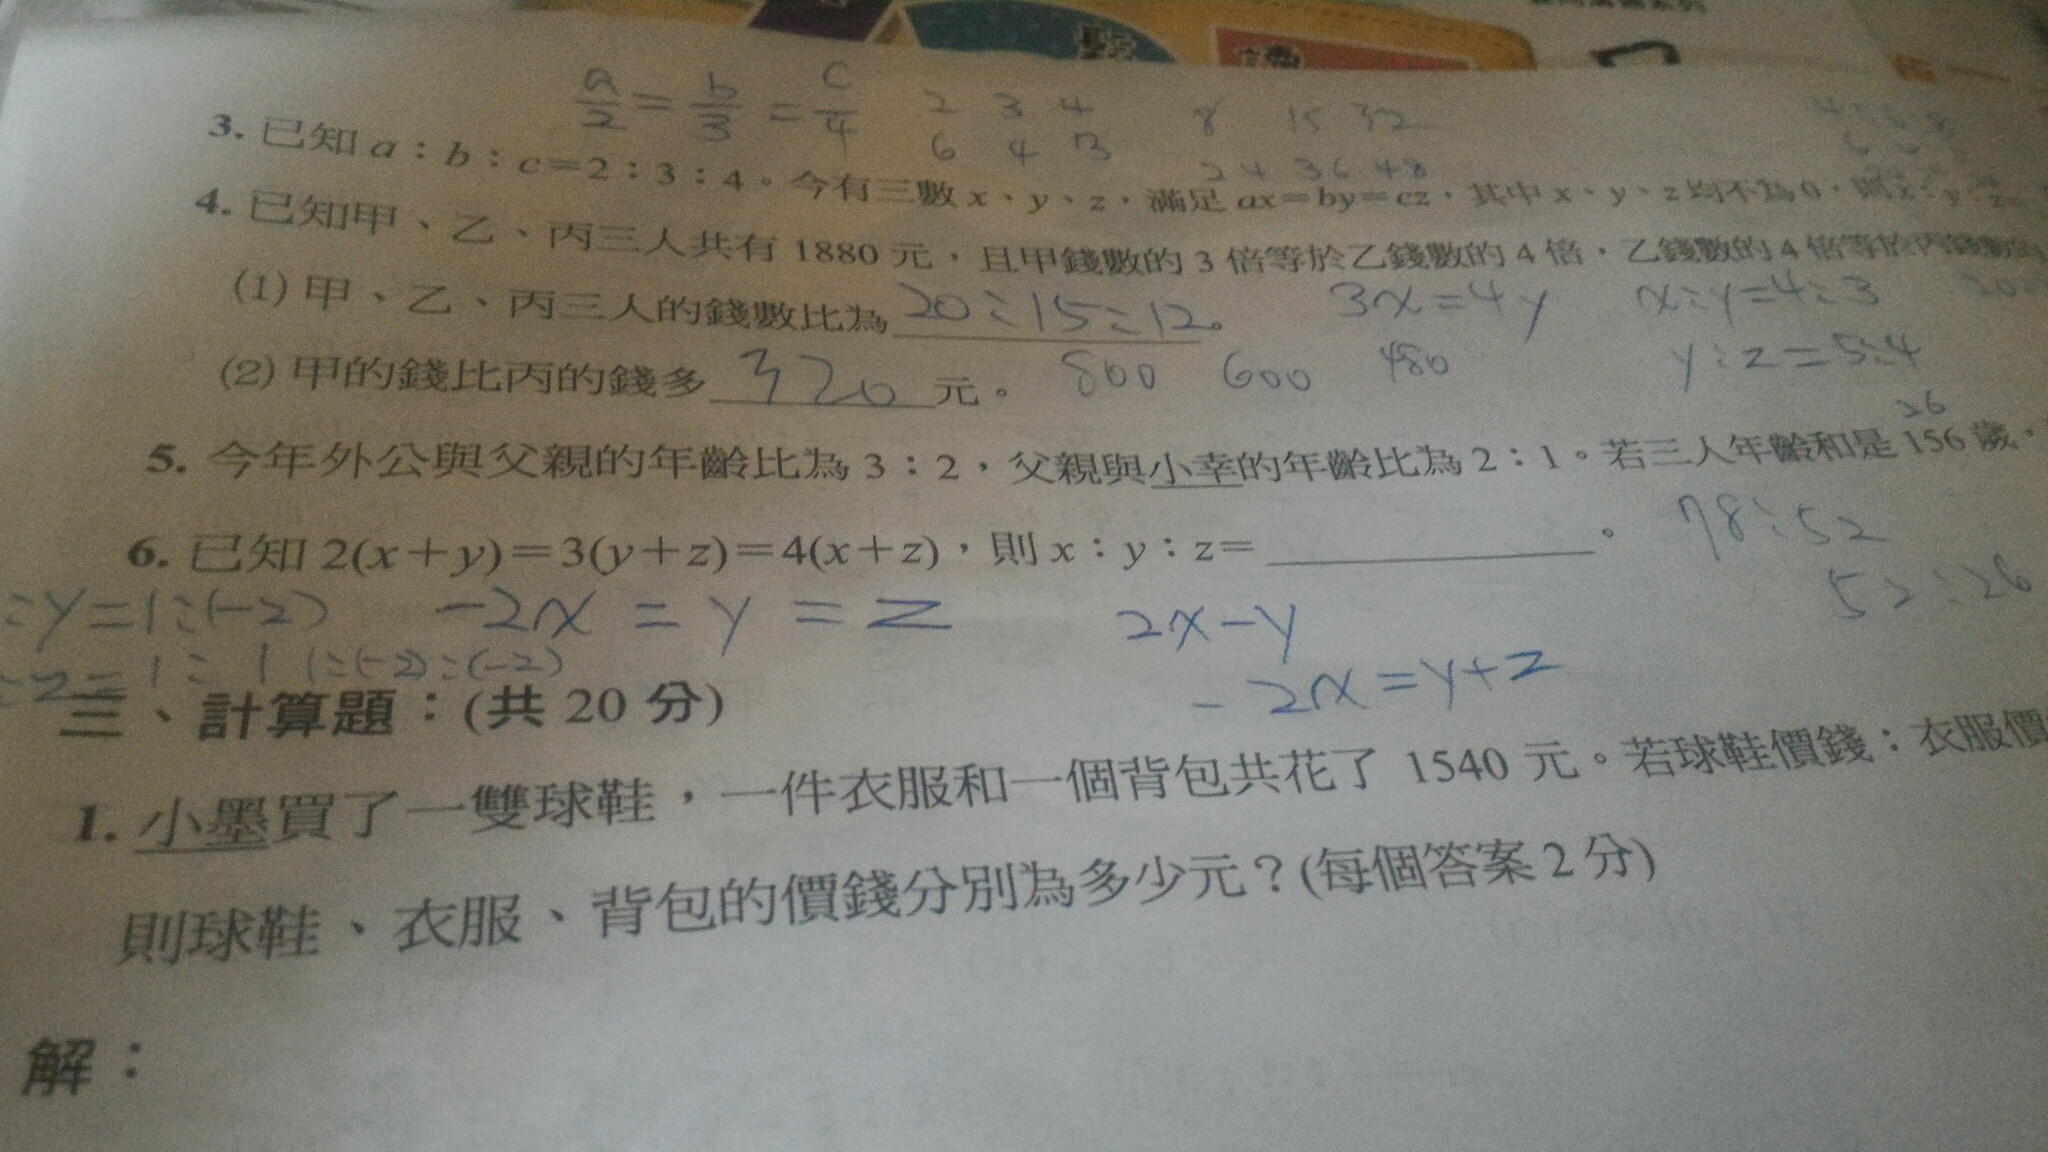 a/2 = b/3 = c/4 2 3 4 8 15 32
6 4 3 24 36 48
3. 已知 a：b：c=2：3：4。今有三數 x、y、z，滿足 ax=by=cz，其中 x、y、z 均不為 0，則 x：y：z=
4. 已知甲、乙、丙三人共有 1880 元，且甲錢數的 3 倍等於乙錢數的 4 倍，乙錢數的 4 倍等於丙錢數的
(1) 甲、乙、丙三人的錢數比為 20:15:12。 3x=4y x:y=4:3
y:z=5:4
(2) 甲的錢比丙的錢多 320 元。 800 600 480
26
5. 今年外公與父親的年齡比為 3：2，父親與小幸的年齡比為 2：1。若三人年齡和是 156 歲，
78:52
52:26
6. 已知 2(x+y)=3(y+z)=4(x+z)，則 x：y：z= 。
:y=1:(-2) -2x=y=z 2x-y
1:1 1:(-2):(-2) -2x=y+z
三、計算題：(共 20 分)
1. 小墨買了一雙球鞋，一件衣服和一個背包共花了 1540 元。若球鞋價錢：衣服價
則球鞋、衣服、背包的價錢分別為多少元？(每個答案 2 分)
解：